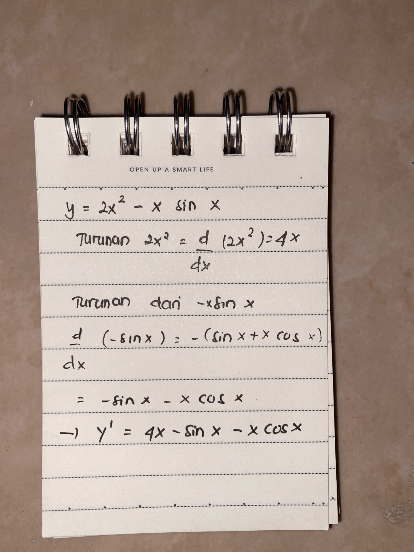 OPEN UP A SMART LIFE
y = 2x² - x sin x
Turunan 2x² = d/dx (2x²) = 4x
Turunan dari -x sin x
d/dx (-sin x) = -(sin x + x cos x)
= -sin x - x cos x
→ y' = 4x - sin x - x cos x